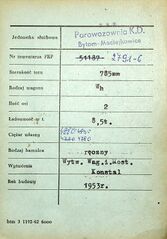 Jednostka służbowa Parowozownia K.D.
Bytom-Maciejkowice
Nr inwentarza PKP 51189 2791-6
Szerokość toru 785mm
Rodzaj wagonu Wh
Ilość osi 2
Ładowność w t. 8,5t.
Ciężar własny 4780
Rodzaj hamulca ręczny
Wytwórnia Wytw. Wag.i.Most.
Konstal
Rok budowy 1953r.